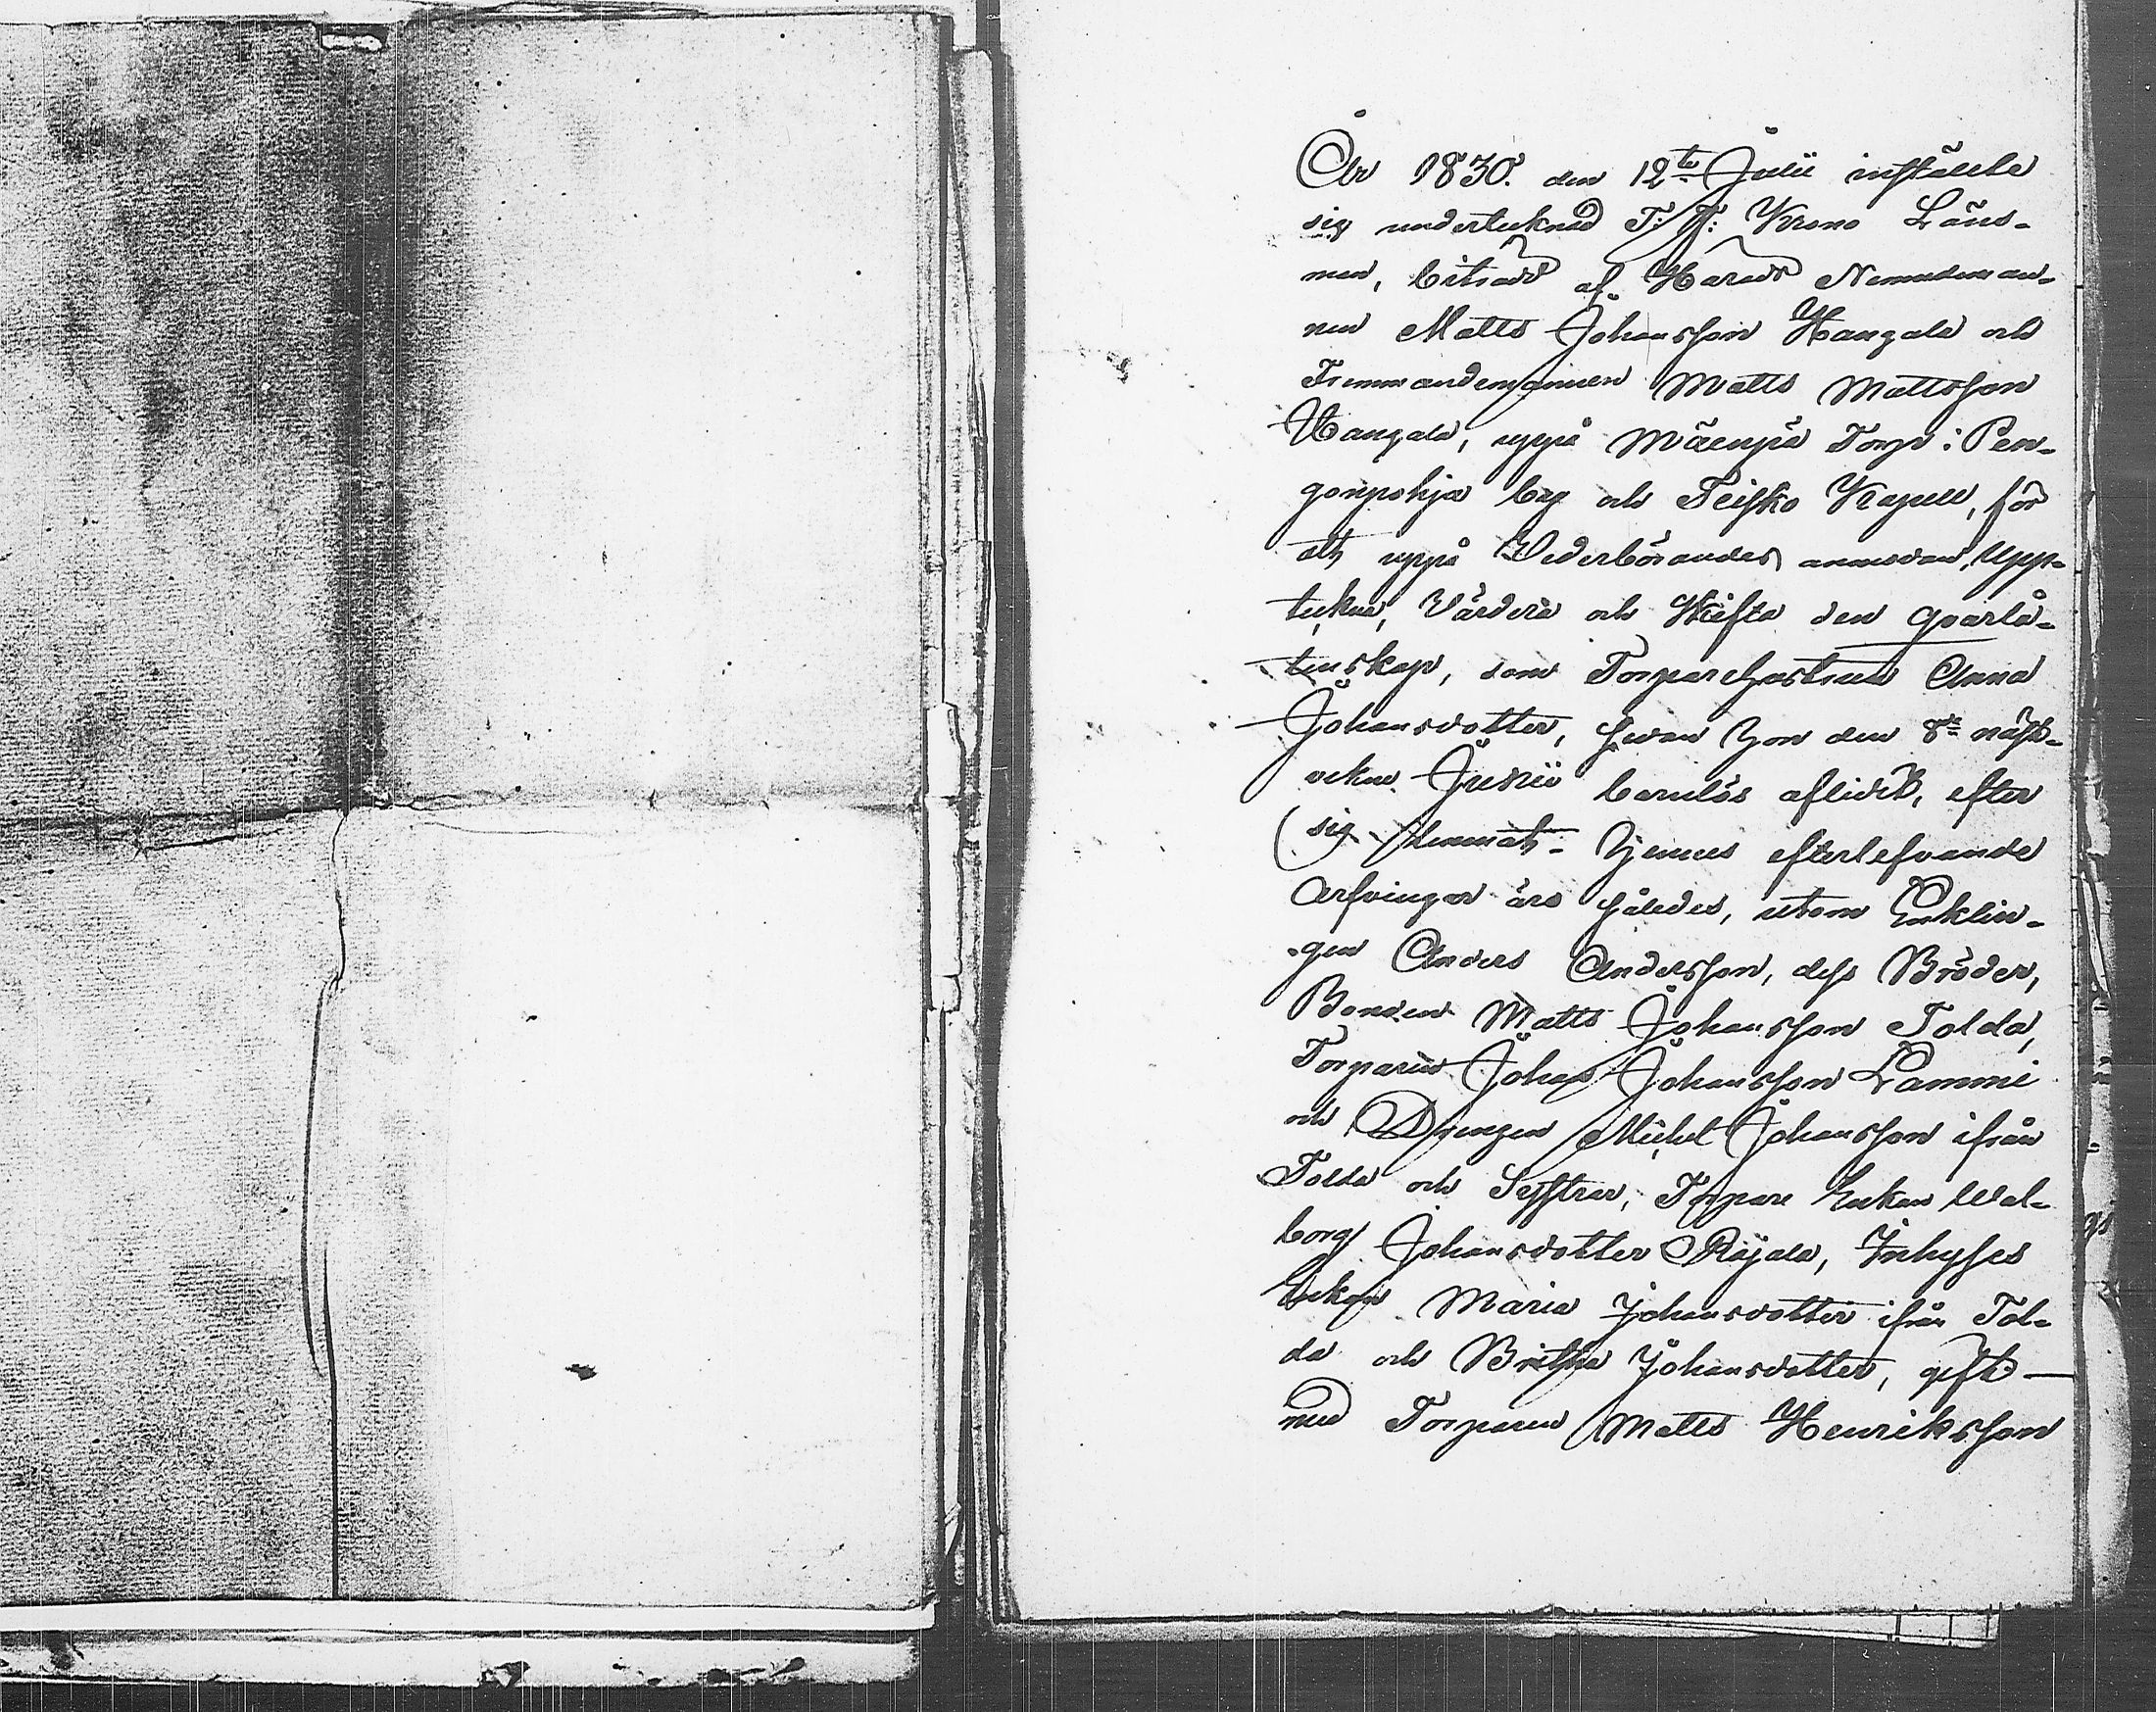 År 1830. den 12te Julii instälde
sig undertecknad T: F: Krono Läns-
man, biträdd af Härads Nemndeman-
nen Matts Johansson Hangala och
Fremmandemannen Matts Mattsson
Hangala, uppå Mäenpä Torp i Pen-
gonpohja by och Teisko Kapell, för
att uppå Vederbörandes annodan, Upp-
tekna, Värdera och Skifta den qvarlå-
tenskap, som Torpare hustrun Anna
Johansdotter, hvan hon den 8de näst-
vekne Junii barnlös aflidit, efter
sig lemnat. Hennes efterlefvande
Arfvingar äro således, utom Enklin-
gen Anders Andersson, dess Bröder,
Bonden Matts Johansson Tolda,
Torparen Johan Johansson Lammi
och Drengen Michel Johansson ifrån
Tolda och Systrar, Torpare Enkan Wal-
borg Johansdotter Räjälä, Inhyses
Enkan Maria Johansdotter ifrån Tol-
da och Britha Johansdotter, gift
med Torparen Matts Henriksson